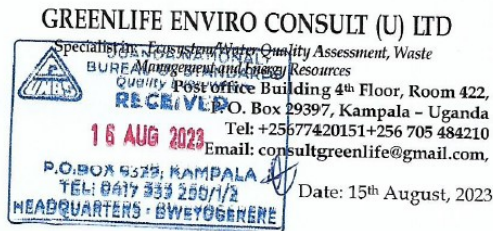 GREENLIFE ENVIRO CONSULT (U) LTD
Specialist in: Ecosystem/Water Quality Assessment, Waste
Management and Energy Resources
Post office Building 4th Floor, Room 422,
P.O. Box 29397, Kampala – Uganda
Tel: +25677420151+256 705 484210
Email: consultgreenlife@gmail.com,
Date: 15th August, 2023
UGANDA NATIONAL
BUREAU OF STANDARDS
UNBS
Quality
RECEIVED
16 AUG 2023
P.O.BOX 6329, KAMPALA
TEL: 0417 333 250/1/2
HEADQUARTERS - BWEYOGERERE